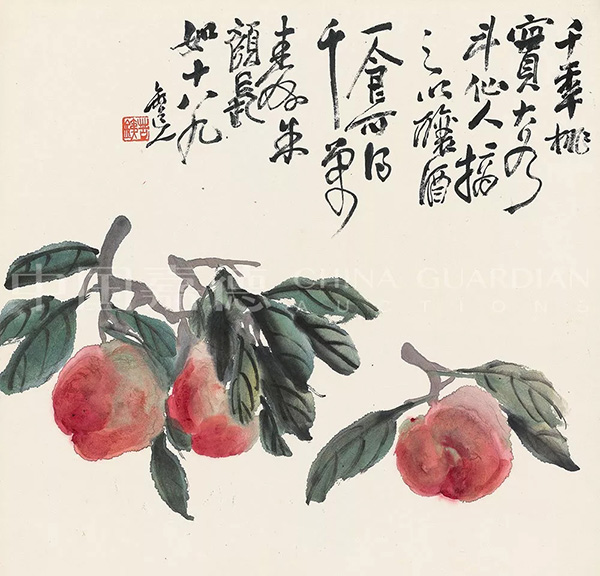 千年桃
實大
斗仙人摘
之以釀酒
一食可得
千萬
朱
顏長
如十八九
中国嘉德 CHINA GUARDIAN
AUCTIONS